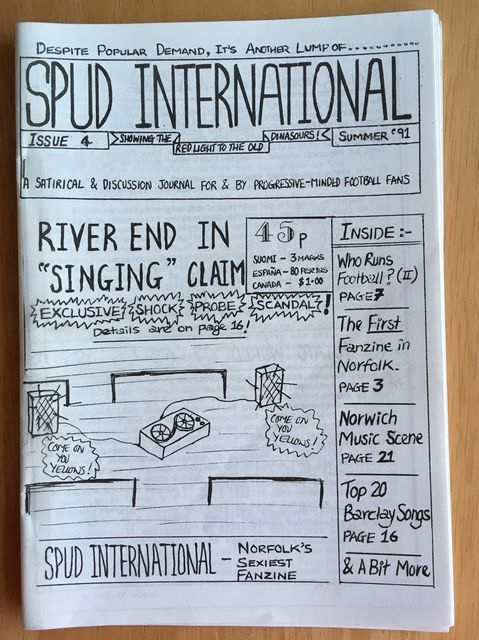 DESPITE POPULAR DEMAND, IT'S ANOTHER LUMP OF............
SPUD INTERNATIONAL
ISSUE 4
SHOWING THE
RED LIGHT TO THE OLD
DINASOURS!
SUMMER '91
A SATIRICAL & DISCUSSION JOURNAL FOR & BY PROGRESSIVE-MINDED FOOTBALL FANS
RIVER END IN
"SINGING" CLAIM
45p
SUOMI - 3 MARKS
ESPAÑA - 80 PESETAS
CANADA - $1.00
EXCLUSIVE? SHOCK? PROBE? SCANDAL?!
Details are on page 16!
COME ON
YOU
YELLOWS!
COME ON
YOU
YELLOWS!
INSIDE :-
Who Runs
Football? (II)
PAGE 7
The First
Fanzine in
Norfolk.
PAGE 3
Norwich
Music Scene
PAGE 21
Top 20
Barclay Songs
PAGE 16
& A Bit More
SPUD INTERNATIONAL -
NORFOLK'S
SEXIEST
FANZINE